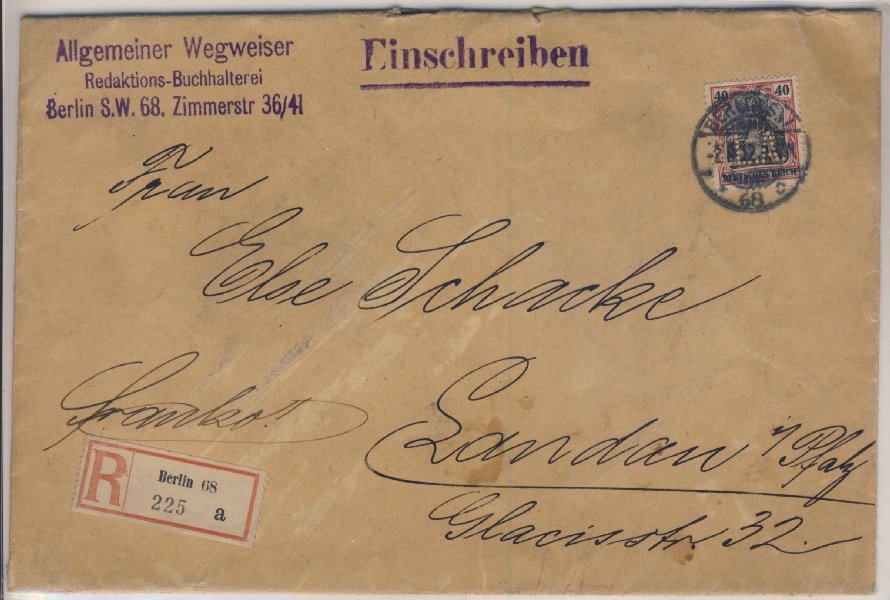 Allgemeiner Wegweiser
Redaktions-Buchhalterei
Berlin S.W. 68, Zimmerstr 36/41
Einschreiben
40 40
DEUTSCHES REICH
BERLIN
68 c
Frau
Else Schacke
Franko!!
Landau i/Pfalz
Glacisstr. 32.
R
Berlin 68
225 a